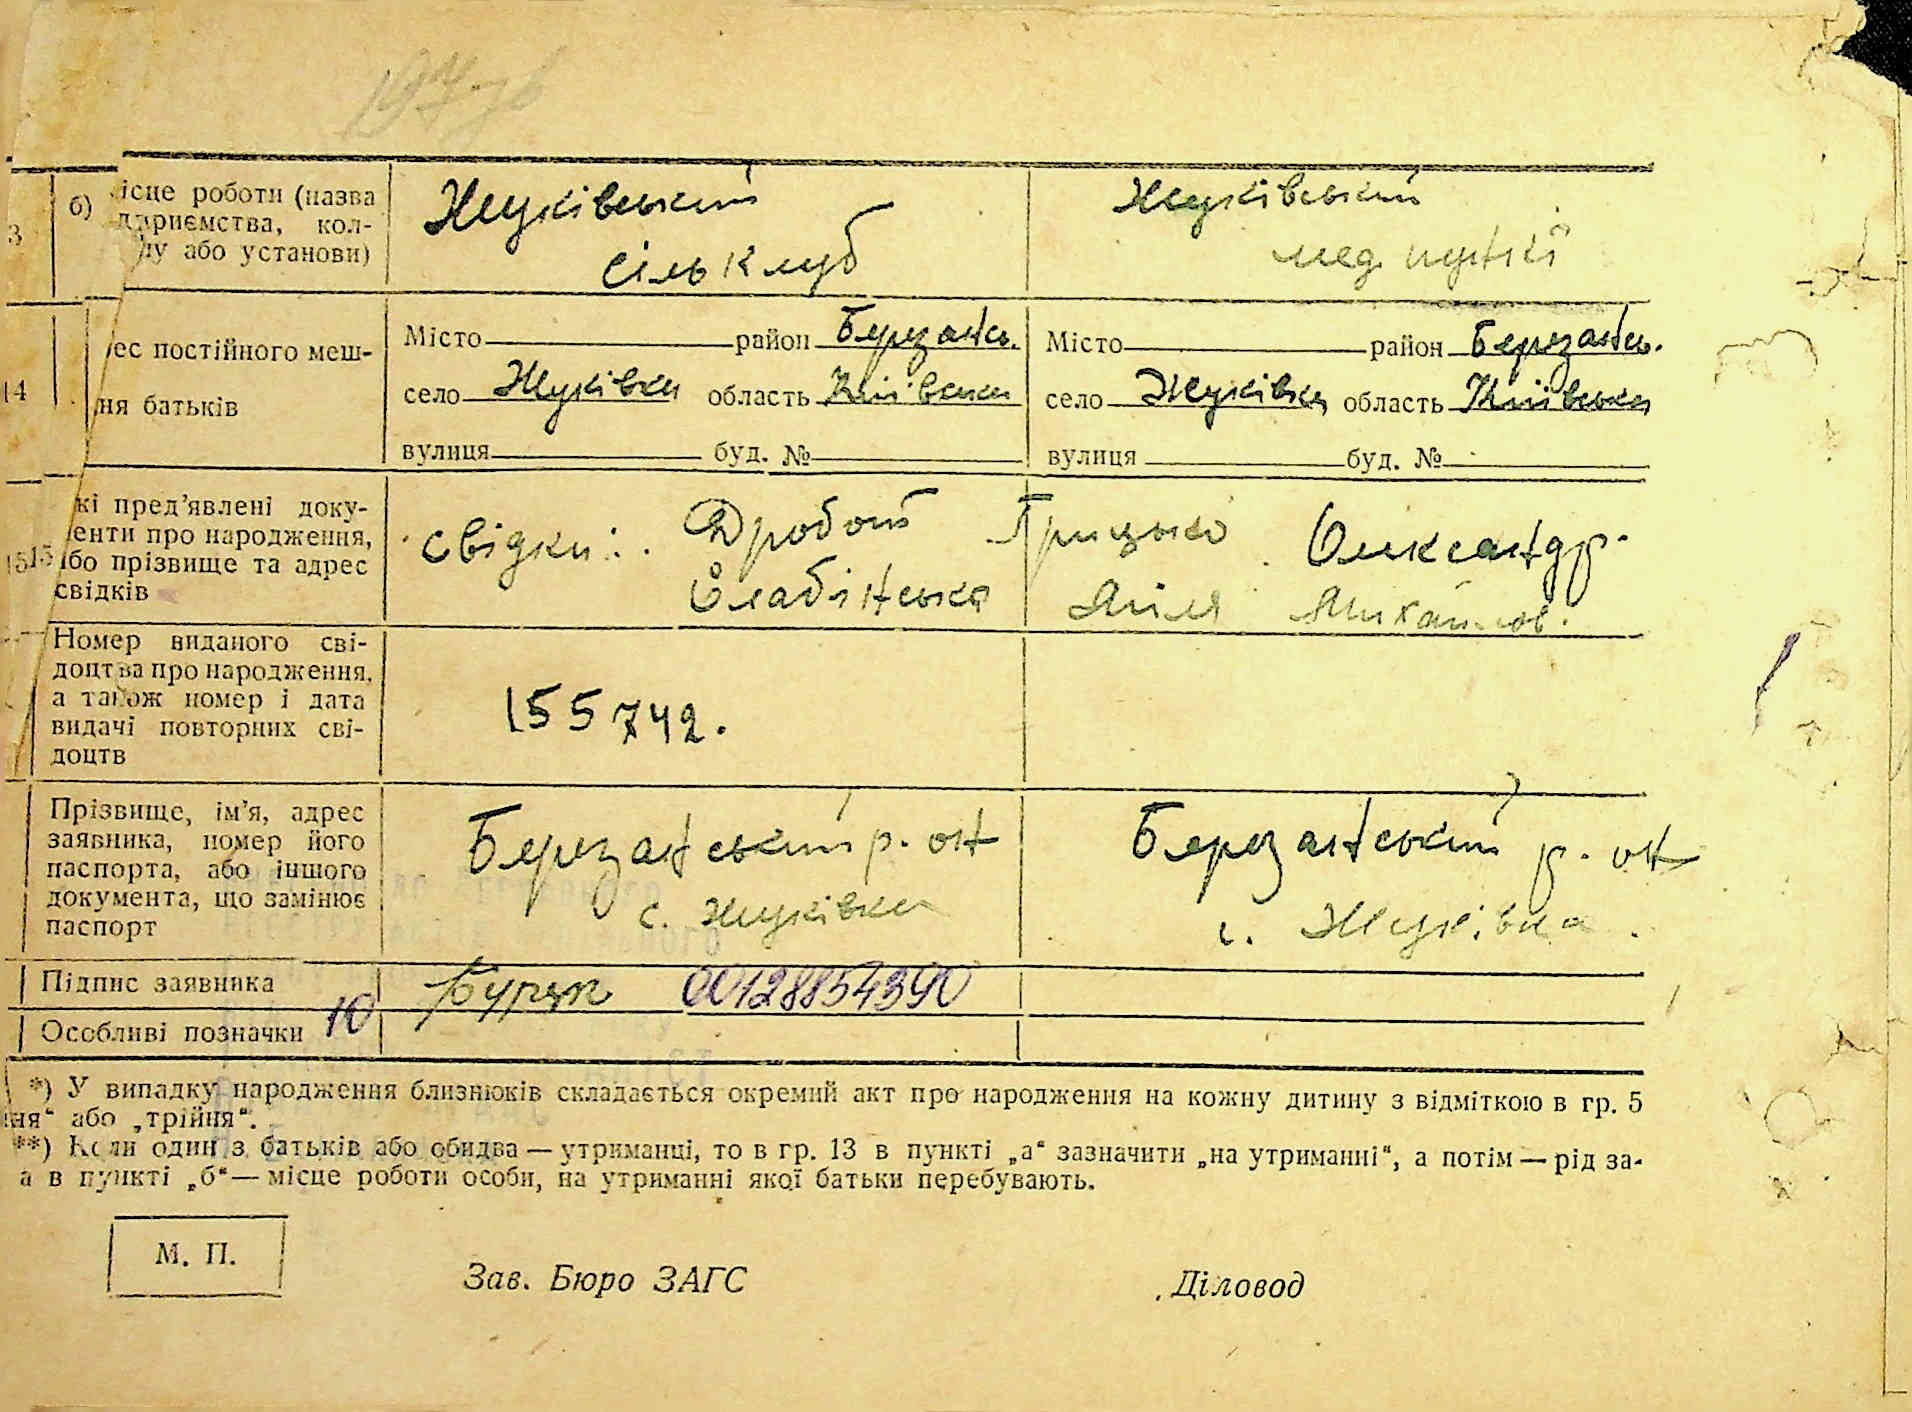 3 б) ісце роботи (назва
дприємства, кол-
пу або установи)
Жуківський
сільклуб
Жуківський
мед пункт
14 рес постійного меш-
ня батьків
Місто район Березансь.
село Жуківка область Київська
вулиця буд. №
Місто район Березансь.
село Жуківка область Київська
вулиця буд. №
15 кі пред’явлені доку-
енти про народження,
або прізвище та адрес
свідків
свідки: Дробот Грицько Олександр.
Слабінська Михайлов.
Номер виданого сві-
доцтва про народження,
а також номер і дата
видачі повторних сві-
доцтв
155742.
Прізвище, ім’я, адрес
заявника, номер його
паспорта, або іншого
документа, що замінює
паспорт
Березанський р-он
с. Жуківка
Березанський р-он
с. Жуківка
Підпис заявника
00128854390
Особливі позначки 10
*) У випадку народження близнюків складається окремий акт про народження на кожну дитину з відміткою в гр. 5
ня“ або „трійня“.
**) Коли один з батьків або обидва — утриманці, то в гр. 13 в пункті „а“ зазначити „на утриманні“, а потім — рід за-
а в пункті „б“ — місце роботи особи, на утриманні якої батьки перебувають.
М. П.
Зав. Бюро ЗАГС
Діловод